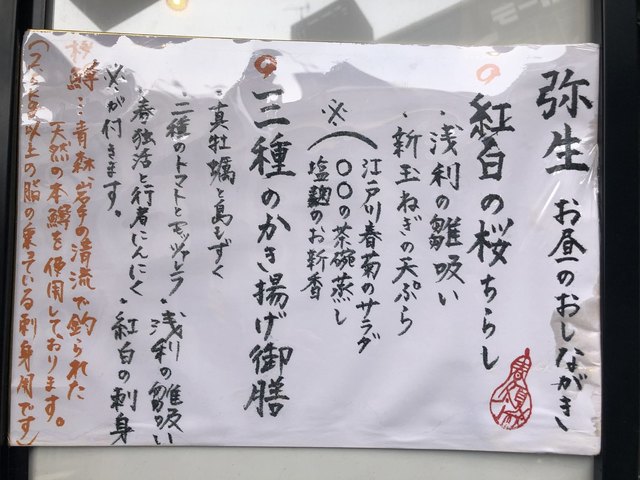 弥生 お昼のおしながき
紅白の桜ちらし
・浅利の雛吸い
・新玉ねぎの天ぷら
※
江戸川春菊のサラダ
〇〇の茶碗蒸し
塩麹のお新香
三種のかき揚げ御膳
・真牡蠣と島もずく
・二種のトマトとモッツァレラ
・浅利の雛吸い
・春独活と行者にんにく
・紅白の刺身
※が付きます。
桜鱒…青森、岩手の清流で釣られた
天然の本鱒を使用しております。
以上の脂の乗っている刺身用です)